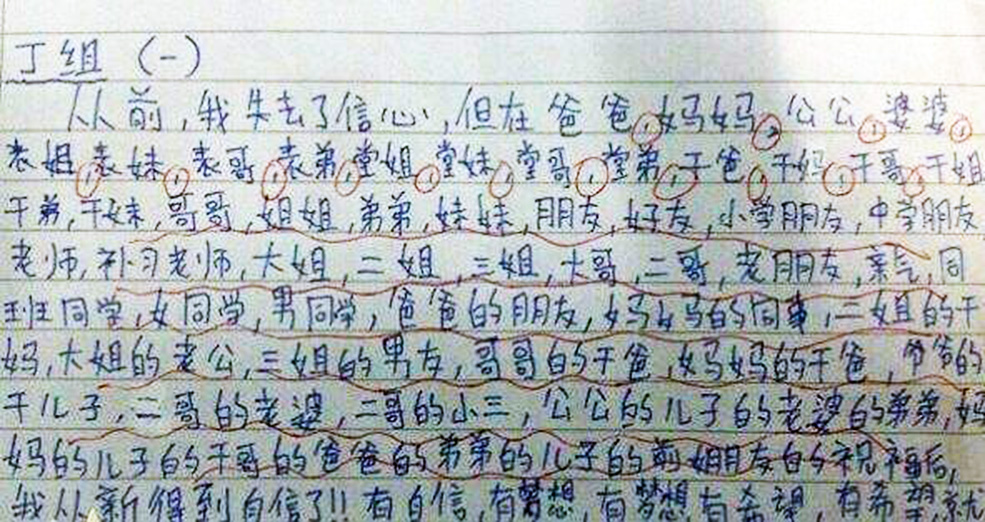 丁组 (一)
从前,我失去了信心,但在爸爸,妈妈,公公,婆婆,
表姐,表妹,表哥,表弟,堂姐,堂妹,堂哥,堂弟,干爸,干妈,干哥,干姐
干弟,干妹,哥哥,姐姐,弟弟,妹妹,朋友,好友,小学朋友,中学朋友
老师,补习老师,大姐,二姐,三姐,大哥,二哥,老朋友,亲气,同
班同学,女同学,男同学,爸爸的朋友,妈妈的同事,二姐的干
妈,大姐的老公,三姐的男友,哥哥的干爸,妈妈的干爸,爷爷的
干儿子,二哥的老婆,二哥的小三,公公的儿子的老婆的弟弟,妈
妈的儿子的干哥的爸爸的弟弟的儿子的前朋友的祝福后,
我从新得到自信了!!有自信,有梦想,有梦想,有希望,有希望,就